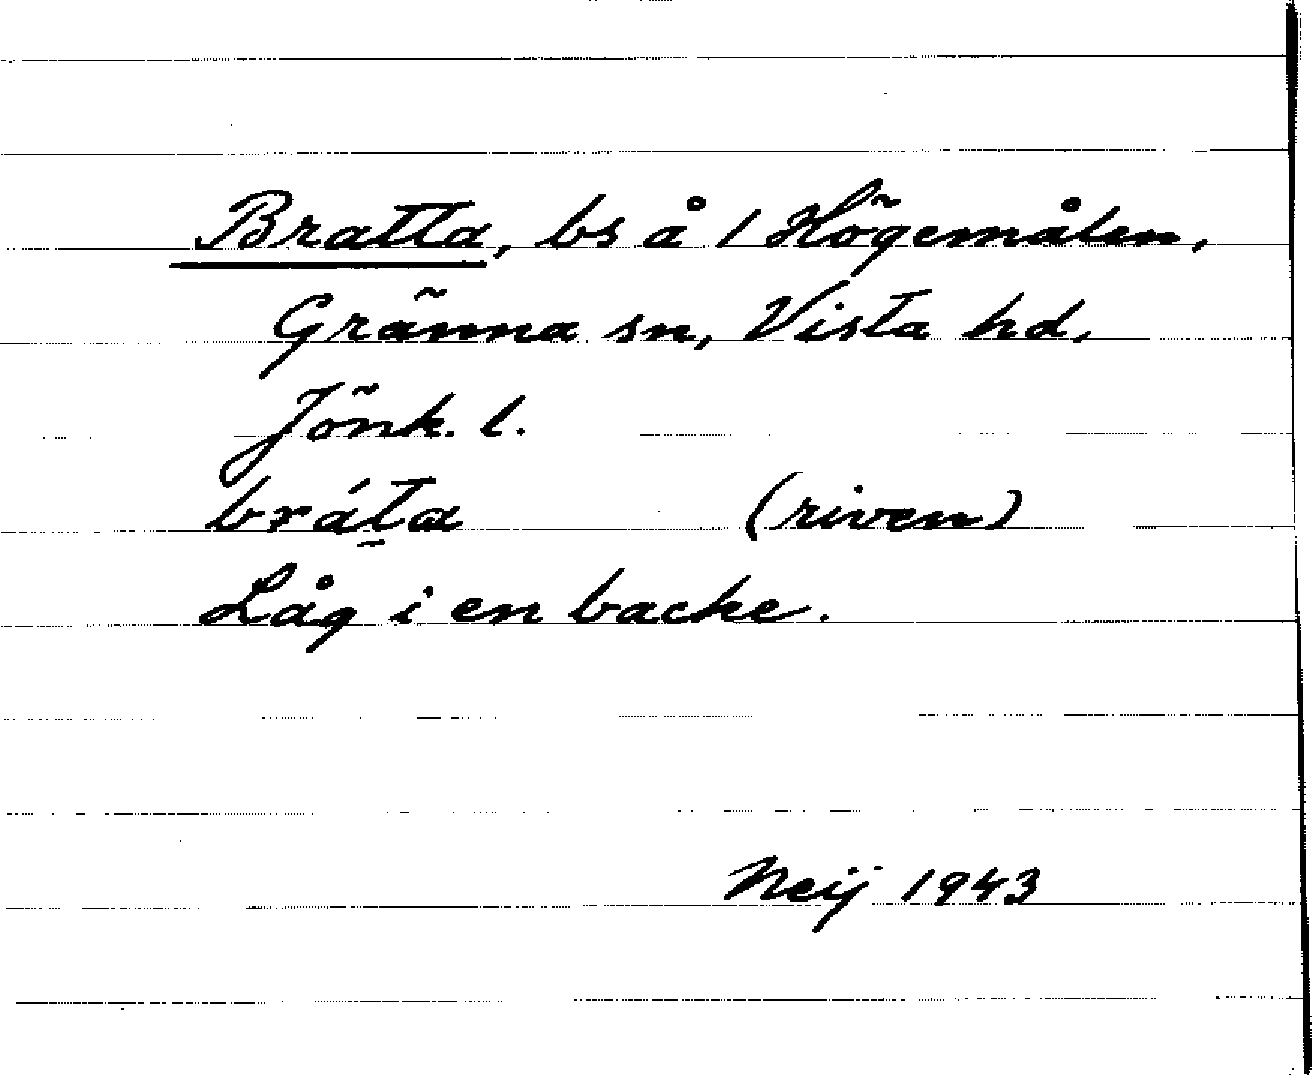 Bratta, bs å 1 Högemålen,
Gränna sn, Vista hd,
Jönk. l.
bráṯa (riven)
Låg i en backe.
Neij 1943